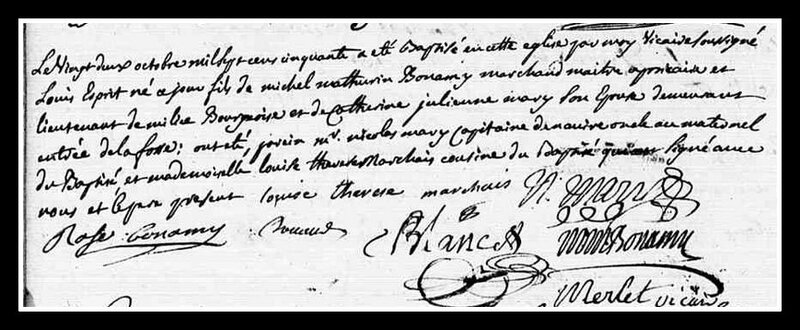 Le vingt deux octobre mil sept cens cinquante a été Baptisé en cette eglise par moy vicaire soussigné
Louis Esprit né ce jour fils de michel mathurin Bonamy marchand maitre apoticaire et
lieutenant de milice Bourgeoise et de Catherine julienne mary son Epouse demeurant
entrée de la fosse: ont été parein mr. nicolas mary Capitaine de navire oncle au maternel
du Baptisé et mademoiselle louise therese Marchais cousine du Baptisé qui ont signé avec
nous et le pere present louise therese marchais N. Mary
Rose Bonamy Blanch mm Bonamy
Merlet vicaire